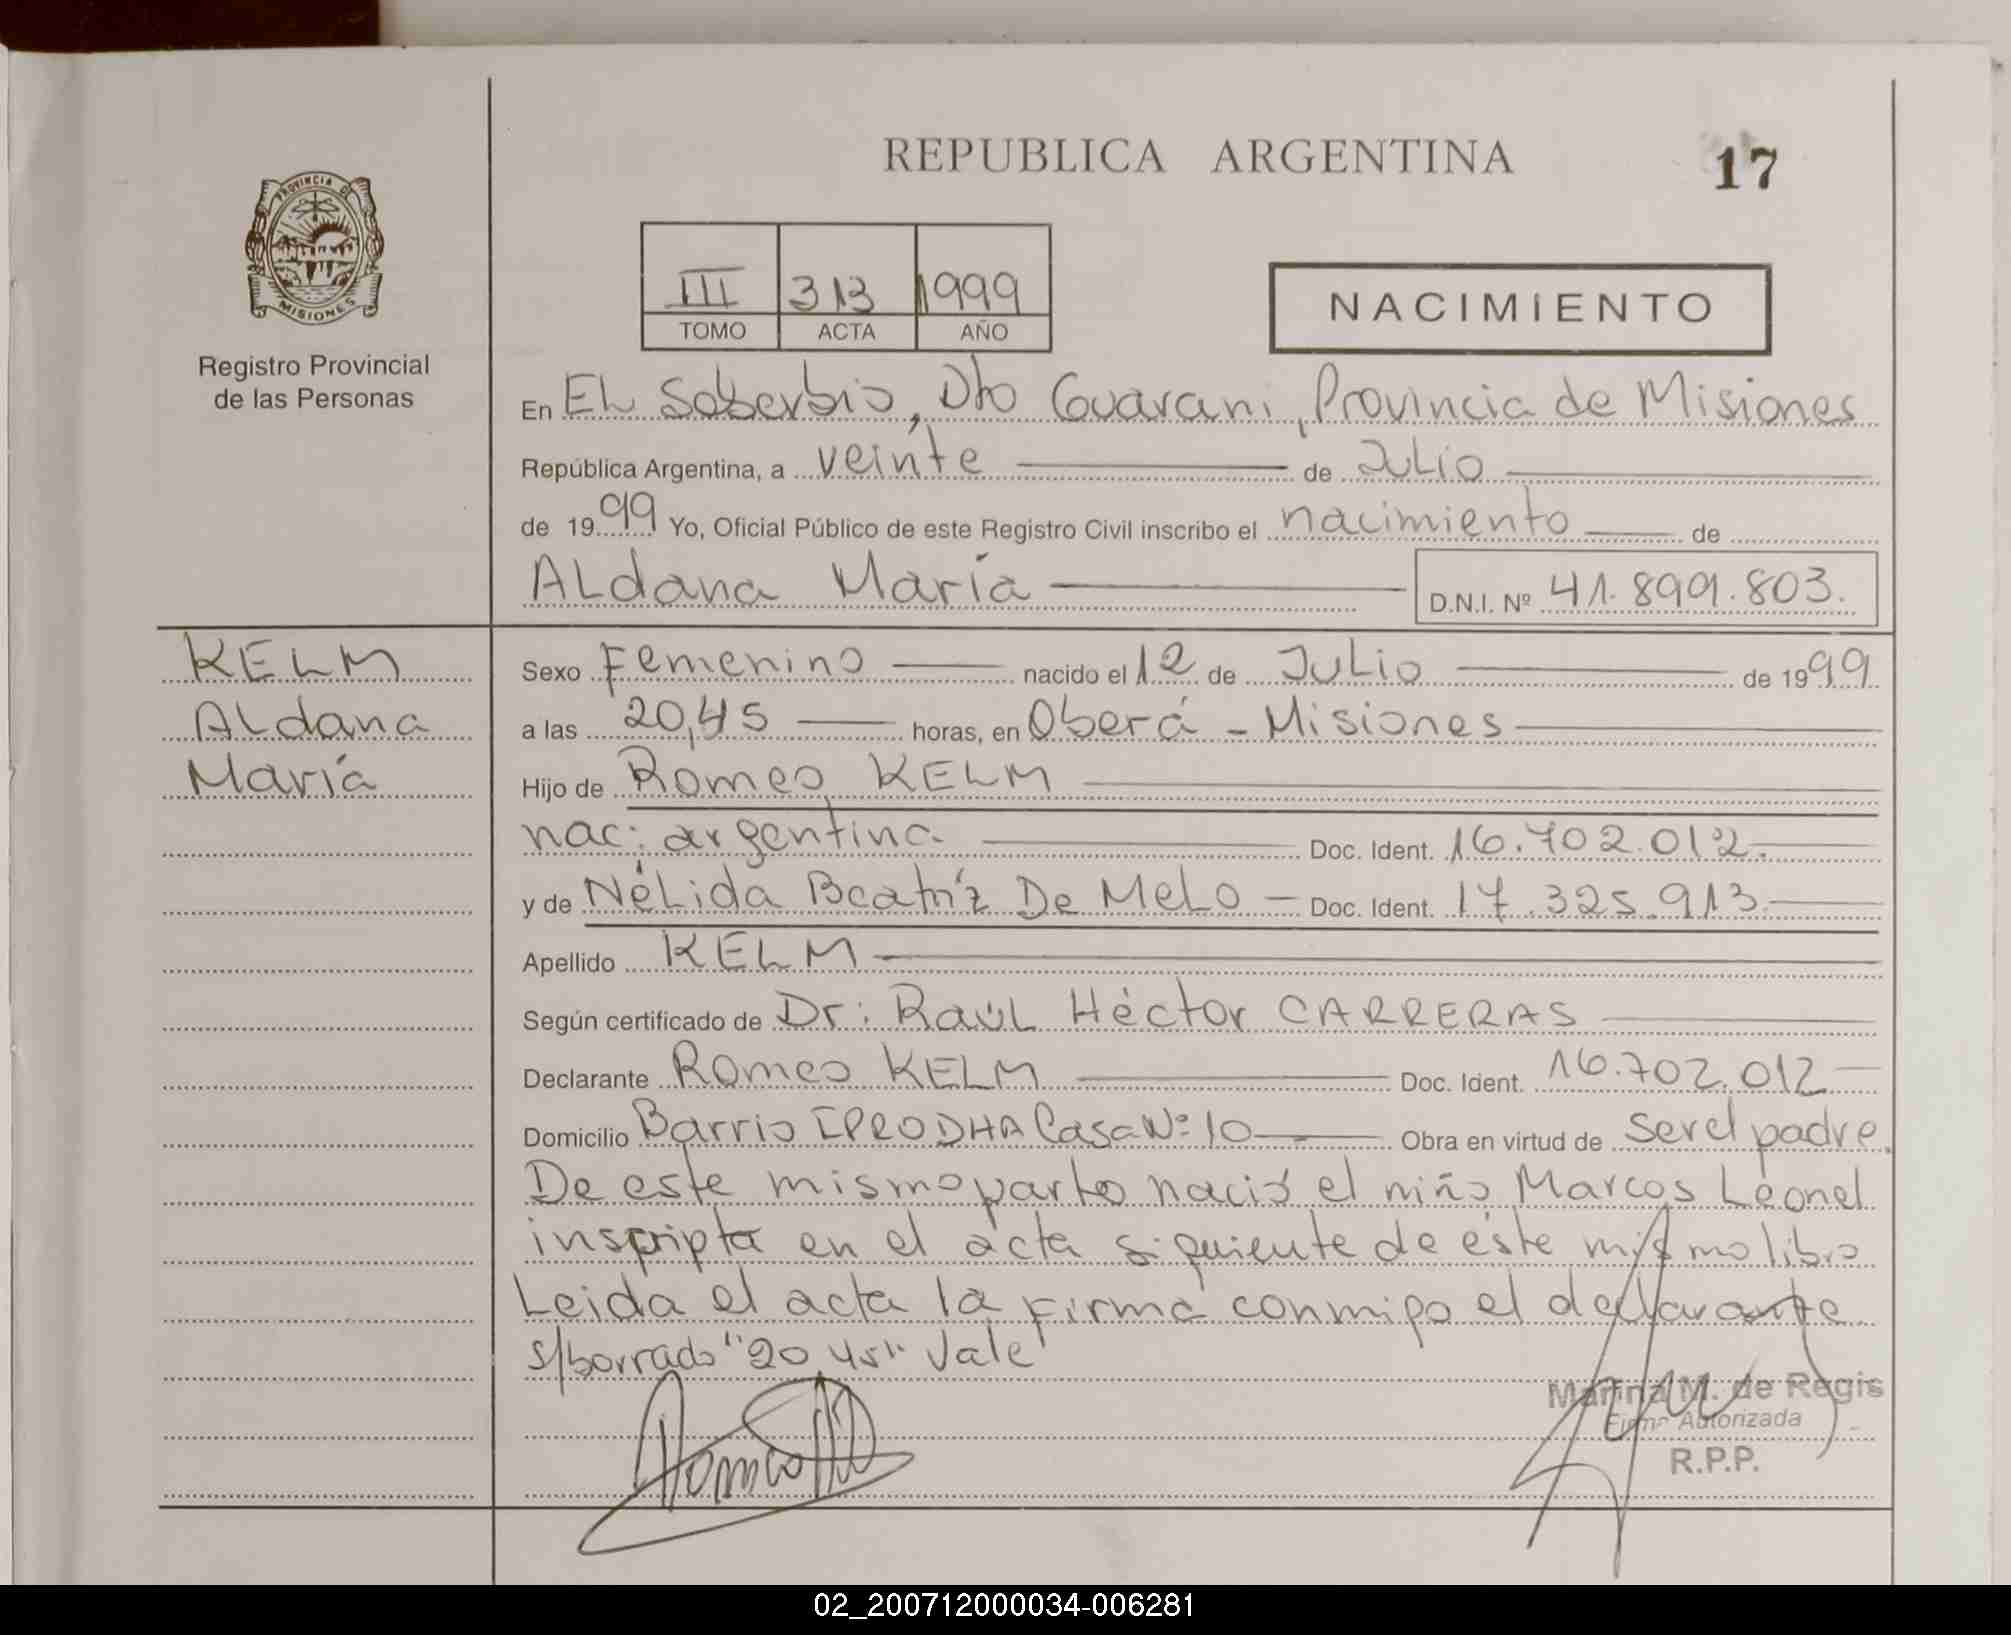 REPUBLICA ARGENTINA
17
PROVINCIA DE
MISIONES
Registro Provincial
de las Personas
III 313 1999
TOMO ACTA AÑO
NACIMIENTO
En EL Soberbio, Dto Guarani, Provincia de Misiones
República Argentina, a veinte de Julio
de 1999 Yo, Oficial Público de este Registro Civil inscribo el nacimiento de
ALdana María D.N.I. Nº 41.899.803.
KELM
ALdana
María
Sexo Femenino nacido el 12 de JuLio de 1999
a las 20,45 horas, en Oberá - Misiones
Hijo de Romeo KELM
nac: argentina Doc. Ident. 16.702.012.
y de NéLida Beatríz De MeLo - Doc. Ident. 17.325.913.
Apellido KELM
Según certificado de Dr: RaúL Héctor CARRERAS
Declarante Romeo KELM Doc. Ident. 16.702.012
Domicilio Barrio IPRODHA Casa Nº 10 Obra en virtud de ser el padre.
De este mismo parto nació el niño Marcos Leonel
inscripta en el acta siguiente de éste mismo libro
Leida el acta la firma conmigo el declarante
s/borrado "20,45" Vale
Marina M. de Regis
Firma Autorizada
R.P.P.
02_200712000034-006281